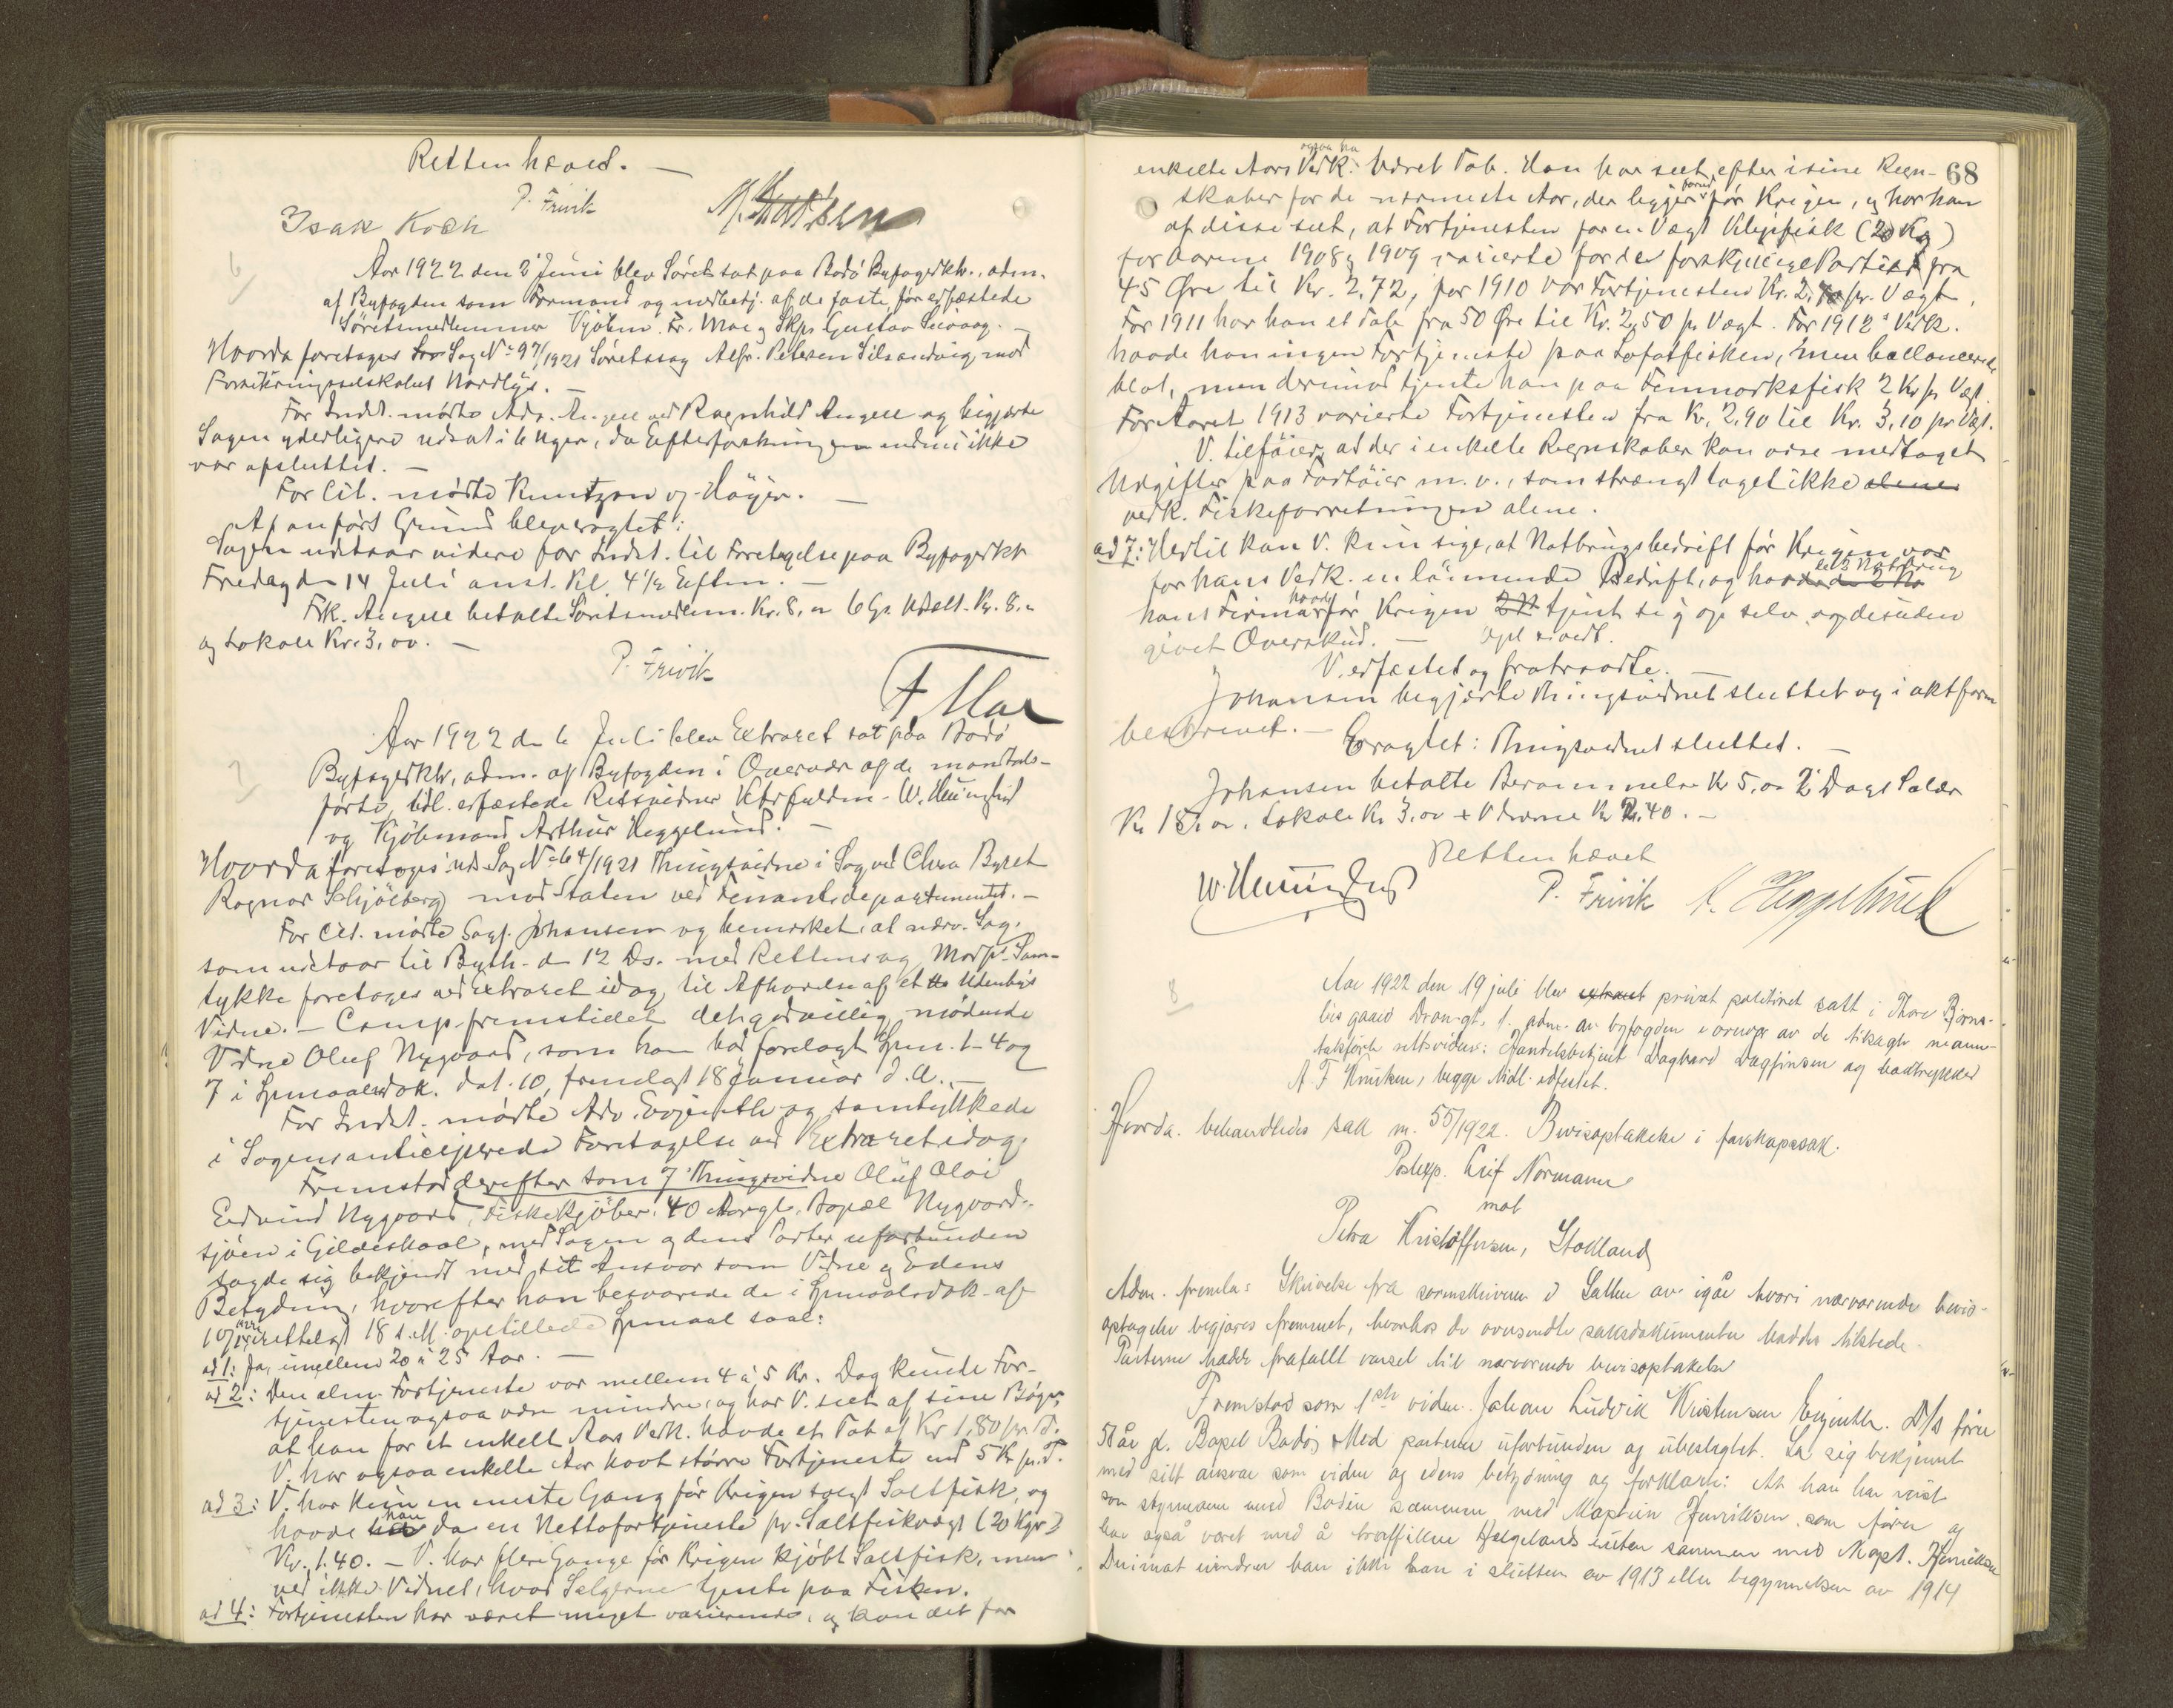 Retten hævet. —
P. Frivik
Isak Koch
6
Aar 1922 den 2' Juni blev Søret sat paa Bodö Byfogedktr., adm.
af Byfogden som Formand og medbetj. af de faste før edfæstede
Søretsmedlemmer Kjøbm. Fr. Moe og Skpr Gustav —
Hvorda foretoges Sag No 97/1921 Søretssag Alfr. Petersen mod
Forsikringsselskabet Nordlys. —
For Indst. mødte Adv. Angell ved Ragnhild Angell og begjærte
Sagen yderligere udsat i 6 Uger, da Efterforskningen endnu ikke
var afsluttet. —
For Cit. mødte Knutzon og Höyer. —
Af anført Grund blev eragtet:
Sagen udstaar videre for Indst. til Foretagelse paa Byfogedktr
Fredag den 14 Juli anst. Kl. 4½ Eftm. —
Frk. Angell betalte Søretsmedlem. Kr. 8, 6 Gr. Udsætt. Kr. 8.
og Lokale Kr. 3,00. —
P. Frivik
F Moe
7
Aar 1922 den 6 Juli blev Extraret sat paa Bodö
Byfogedktr, adm. af Byfogden i Overvær af de mandtals-
førte, tidl. edfæstede Retsvidner W. Hemminghyt
og Kjøbmand Arthur Heggelund. —
Hvorda foretoges Sag No 64/1921 Thingsvidne i Sag ved Chra Byret
Ragnar Schjölberg mod Staten ved Finantsdepartementet. —
For Cit. mødte Sagf. Johansen og bemerket, at nærv. Sag,
som udstaar til Byth. den 12 Ds. med Rettens og Modp's Sam-
tykke foretages ved Extraret idag til Afhørelse af et Utenbys
Vidne. — Comp. fremstillet det godvillig mødende
Vidne Oluf Nygaard, som han bad forelagt Spm. 1-4 og
7 i Spmaalsdok. dat. 10, fremlagt 18 Januar d.A. —
For Indst. mødte Adv. Evjenth og samtykkede
i Sagens anticiperede Foretagelse ved Extraret idag.
Fremstod derefter som 7' Thingsvidne Oluf Olai
Edvind Nygaard, Fiskekjøber, 40 Aar gl. Bopæl Nygaard-
sjöen i Gildeskaal, med Sagen og dens Parter uforbunden
sagde sig bekjendt med sit Ansvar som Vidne og Edens
Betydning, hvorefter han besvarede de i Spmaalsdok. af
10/1 irettelagt 18 s.M. opstillede Spmaal saal:
ad 1: Ja, imellem 20 à 25 Aar. —
ad 2: Den alm. Fortjeneste var mellem 4 à 5 Kr. Dog kunde For-
tjenesten ogsaa være mindre, og har V. seet af sine Bøger,
at han for et enkelt Aars Vedk. havde et Tab af Kr 1,80 pr T.
V. har ogsaa enkelte Aar havt større Fortjeneste end 5 Kr pr. T.
ad 3: V. har kun en eneste Gang før Krigen solgt Saltfisk, og
havde han da en Nettofortjeneste pr. Saltfiskvægt (20 Kgr)
Kr. 1.40. — V. har flere Gange før Krigen kjøbt Saltfisk, men
ved ikke Vidnet, hvad Selgerne tjente paa Fisken.
ad 4: Fortjenesten har været meget varierende, og kan det for
68
enkelte Aars Vedk. ogsaa ha været Tab. Han har seet efter i sine Regn-
skaber for de nærmeste Aar, der ligger forud før Krigen, og har han
af disse seet, at Fortjenesten for en Vægt Klipfisk (20 Kg)
for Aarene 1908 og 1909 varierte for de forskjellige Partier fra
45 Øre til Kr. 2.72, for 1910 var Fortjenesten Kr. 2, pr. Vægt,
For 1911 har han et Tab fra 50 Øre til Kr. 2,50 pr Vægt. For 1912's Vedk.
havde han ingen Fortjeneste paa Lofotfisken, men ballancerede
blot, men derimod tjente han paa Finmarksfisk 2 Kr pr Vægt.
For Aaret 1913 varierte Fortjenesten fra Kr. 2,90 til Kr. 3,10 pr Vægt.
V. tilføier, at der i enkelte Regnskaber kan være medtaget
Udgifter paa Fartöier m.v., som strængt taget ikke alene
vedk. Fiskeforretningen alene.
ad 7: Hertil kan V. kun sige, at Notbrugsbedrift før Krigen var
for hans Vedk. en lönnende Bedrift, og havde 2 à 3 Notbrug
hans Firma havde før Krigen tjent sig op selv og desuden
givet Overskud. — Opl. vedt.
V. edfæstet og fratraadte. —
Johansen begjærte Thingsvidnet sluttet og i aktform
beskrevet. — Eragtet: Thingsvidnet sluttet. —
Johansen betalte Berammelse Kr 5,00 2 Dags Salær
Kr 18,00. Lokale Kr 3,00 + Vidnerne Kr 2.40. —
Retten hævet
W. Hemminghyt
P. Frivik A. Heggelund
8
Aar 1922 den 19 juli blev extraret privat politiret satt i Thore Bjørns-
bis gaard Dron.gt. 1. adm. av byfogden i overvær av de tilsagte mann-
talsførte rettsvidner: Handelsbetjent Dagvard Dagfinsen og boktrykker
A. F. Knutsen, begge tidl. edfestet.
Hvorda behandledes sak nr. 55/1922. Bevisoptakelse i farskapssak.
Postexp. Leif Normann
mot
Petra Kristoffersen, Stokland
Adm. fremla: Skrivelse fra sorenskriveren i Salten av igår hvori nærværende bevis-
optagelse begjæres fremmet, hvorhos de oversendte saksdokumenter haddes tilstede.
Parterne hadde frafallt varsel til nærværende bevisoptakelse
Fremstod som 1ste vidne Johan Ludvik Kristensen Evjenth. D/S fører
51 år gl. Bopel Bodø. Med parterne uforbunden og ubeslegtet. La sig bekjennt
med sitt ansvar som vidne og edens betydning og forklarte: At han har reist
som styrmann med Bodin sammen med Kaptein Henriksen som fører og
har også været med å trafikere Helgelands ruten sammen med Kapt. Henriksen
Derimot erindrer han ikke han i slutten av 1913 eller begynnelsen av 1914